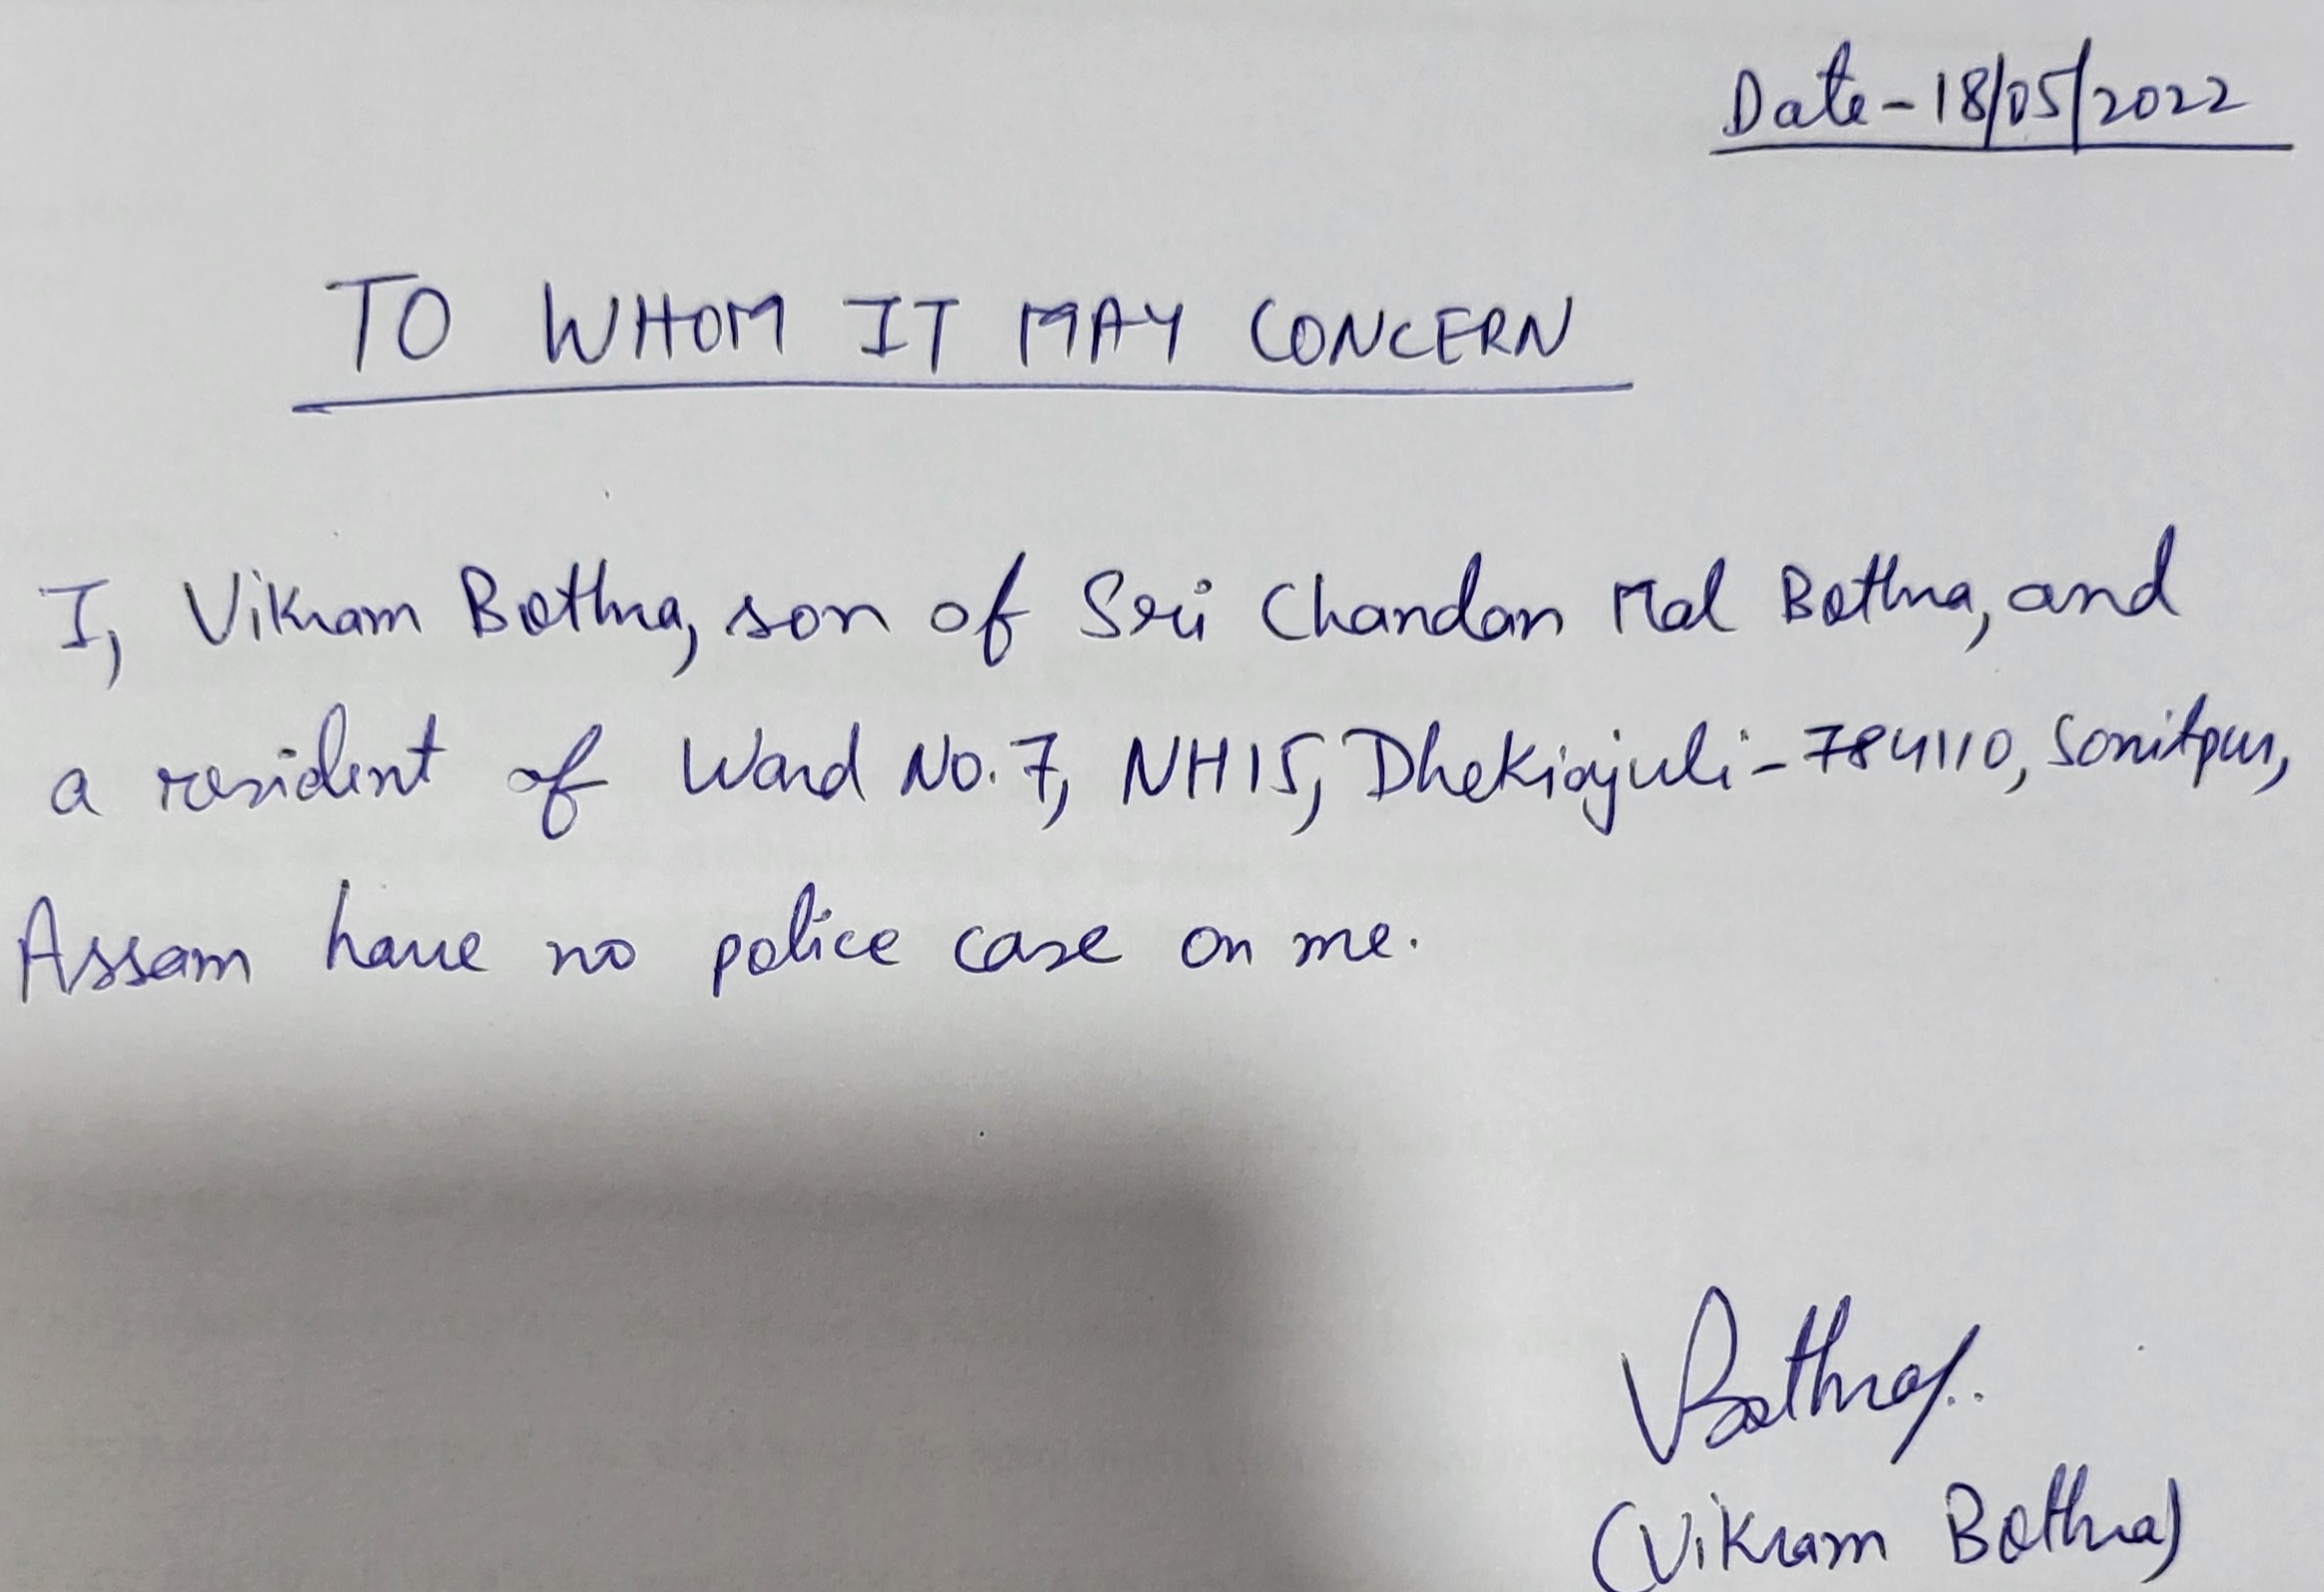 Date-18/05/2022
TO WHOM IT MAY CONCERN
I, Vikram Bothra, son of Sri Chandan Mal Bothra, and
a resident of Ward No. 7, NH15, Dhekiajuli-784110, Sonitpur,
Assam have no police case on me.
VBothra
(Vikram Bothra)